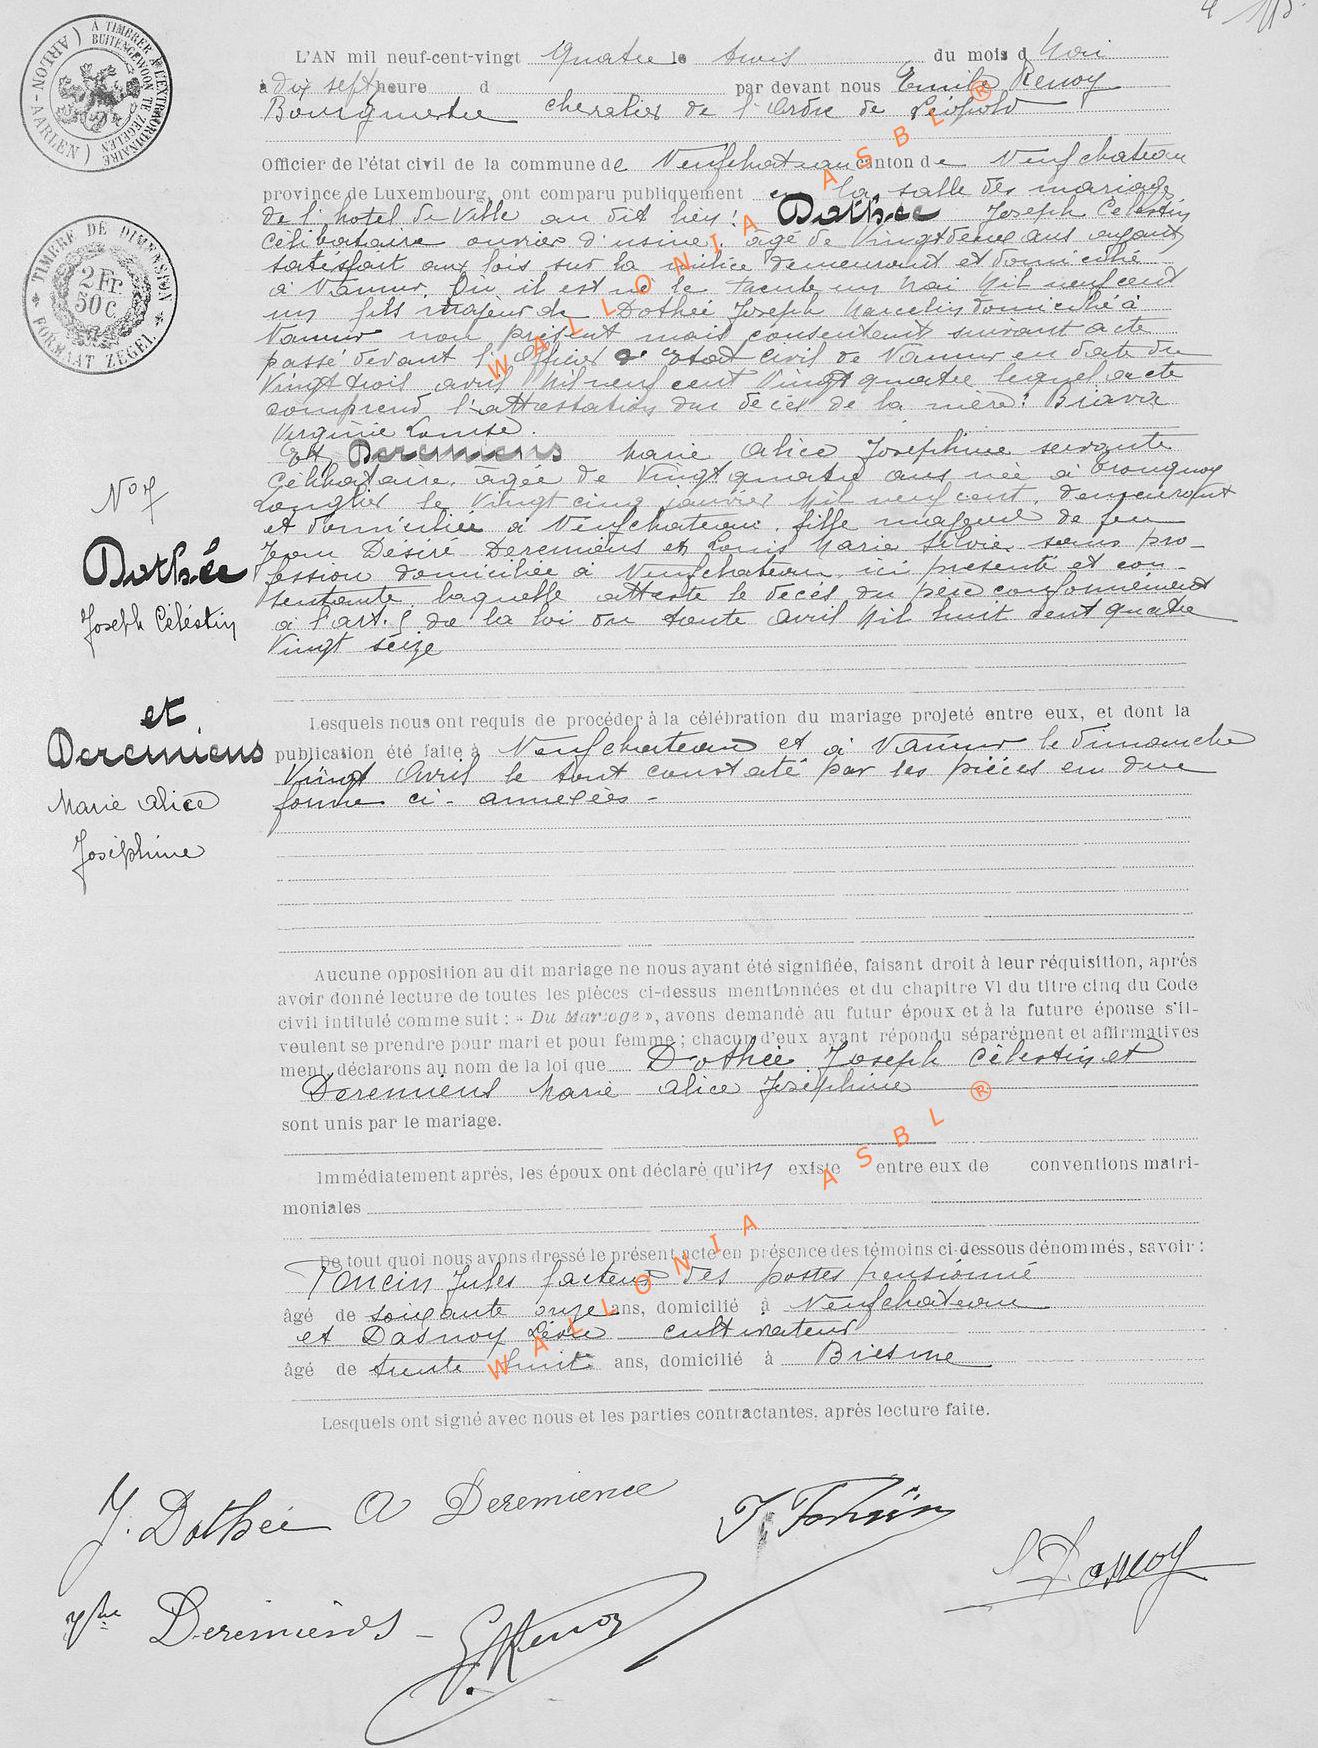 À TIMBRER À L'EXTRAORDINAIRE
BUITENGEWOON TE ZEGELEN
(ARLON - AARLEN)
L'AN mil neuf-cent-vingt quatre le trois du mois d Mai
à dix sept heure d par devant nous Emile Renoy
Bourgmestre chevalier de l'Ordre de Léopold
Officier de l'état civil de la commune de Neufchateau canton de Neufchateau
province de Luxembourg, ont comparu publiquement en la salle des mariage
de l'hotel de Ville au dit lieu: Dothée Joseph Célestin
TIMBRE DE DIMENSION
2 Fr.
50 C
FORMAAT ZEGEL
célibataire ouvrier d'usine, âgé de Vingt deux ans ayant
satisfait aux lois sur la milice demeurant et domicilié
à Namur, Ou il est né le trente un Mai Mil neuf cent
un fils majeur de Dothée Joseph Marcelin domicilié à
Namur non présent mais consentant suivant acte
passé devant l'Officier de l'Etat civil de Namur en date du
Vingt trois avril Mil neuf cent Vingt quatre lequel acte
comprend l'attestation du décès de la mère:
Virginie Louise.
Et Deremiens Marie Alice Joséphine servante
Célibataire, âgée de Vingt quatre ans née à Tronquoy
Longlier le Vingt cinq janvier Mil neuf cent, demeurant
et domiciliée à Neufchateau, fille majeure de feu
Jean Désiré Deremiens et Louis Marie Silvie, sans pro-
fession domiciliée à Neufchateau, ici présente et con-
sentante, laquelle atteste le décès du père conformément
à l'art. de la loi du trente avril Mil huit cent quatre
Vingt seize
No 7
Dothée
Joseph Célestin
et
Deremiens
Marie Alice
Joséphine
Lesquels nous ont requis de procéder à la célébration du mariage projeté entre eux, et dont la
publication été faite à Neufchateau et à Namur le dimanche
Vingt Avril le tout constaté par les pièces en due
forme ci-annexées -
Aucune opposition au dit mariage ne nous ayant été signifiée, faisant droit à leur réquisition, après
avoir donné lecture de toutes les pièces ci-dessus mentionnées et du chapitre VI du titre cinq du Code
civil intitulé comme suit : « Du Mariage », avons demandé au futur époux et à la future épouse s'il-
veulent se prendre pour mari et pour femme ; chacun d'eux ayant répondu séparément et affirmatives
ment, déclarons au nom de la loi que Dothée Joseph Célestin et
Deremiens Marie Alice Joséphine
sont unis par le mariage.
Immédiatement après, les époux ont déclaré qu'il n'y existe entre eux de conventions matri-
moniales
De tout quoi nous avons dressé le présent acte en présence des témoins ci-dessous dénommés, savoir :
Toncin Jules facteur des postes pensionné
âgé de soixante onze ans, domicilié à Neufchateau
et Dasnoy Léon cultivateur
âgé de trente huit ans, domicilié à Biesme
Lesquels ont signé avec nous et les parties contractantes, après lecture faite.
J. Dothée A Deremience J. Toncin
L Dasnoy
Deremiens - E. Renoy
WALLONIA ASBL ®
WALLONIA ASBL ®